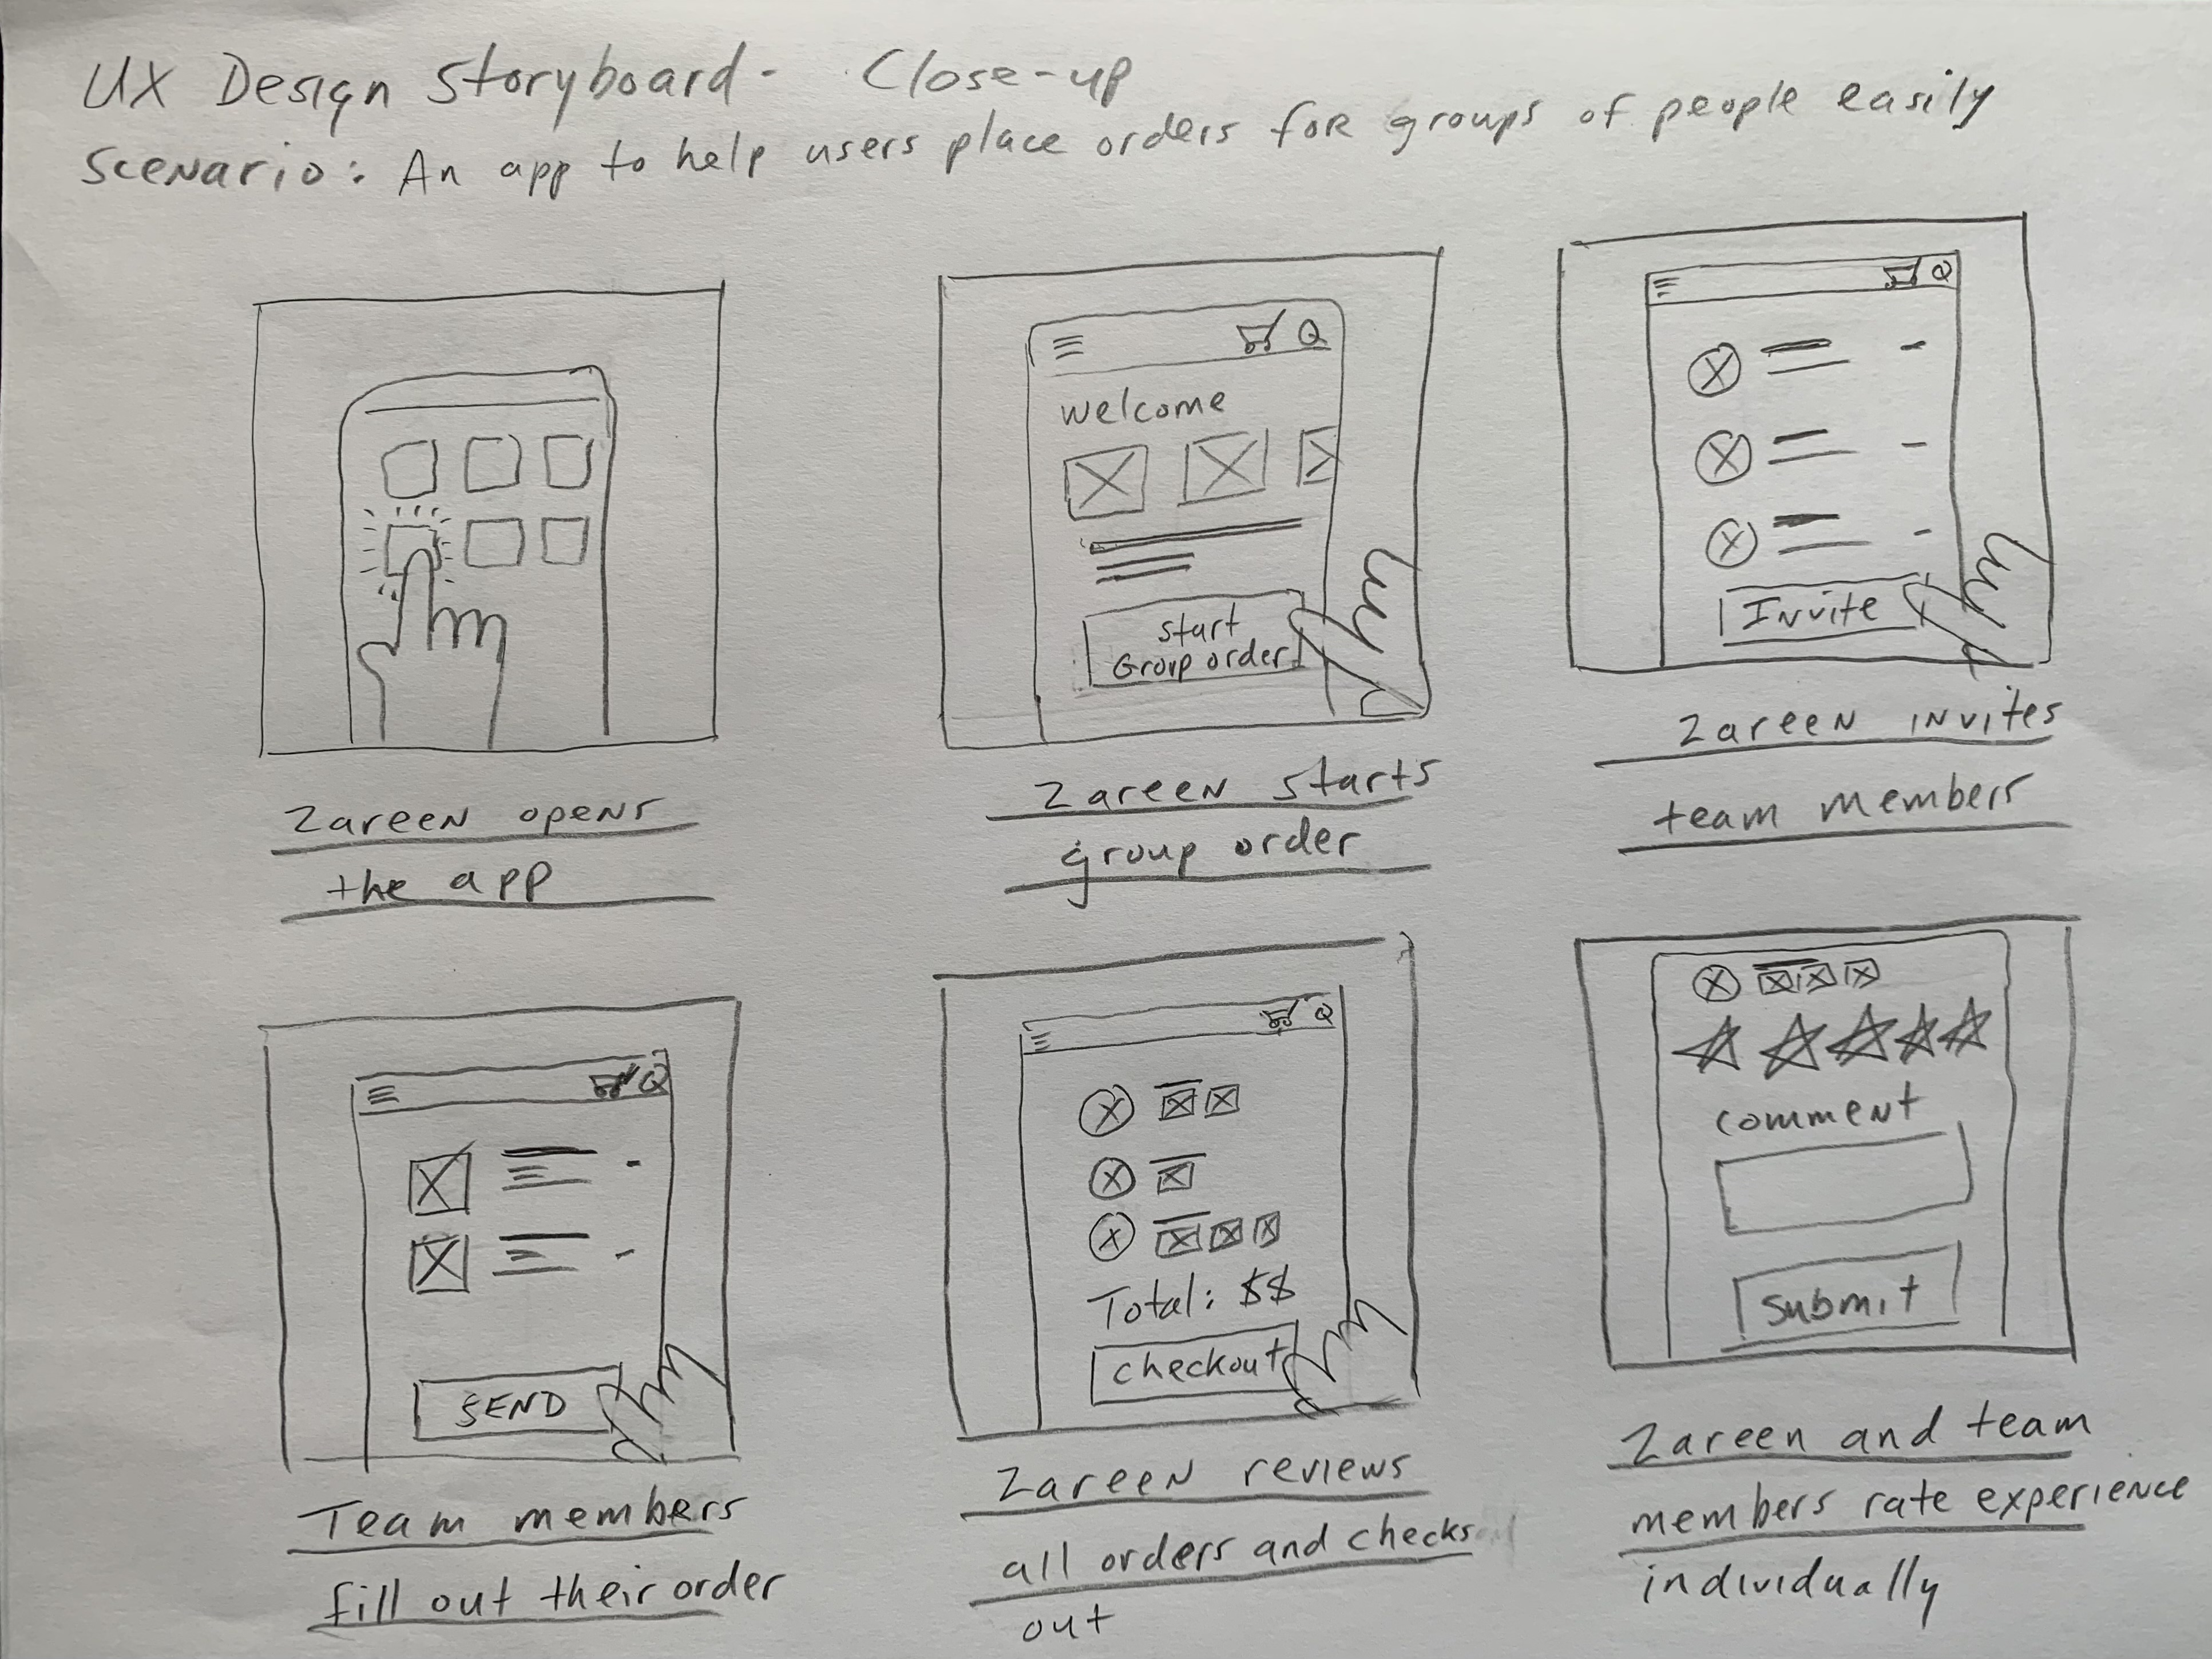 UX Design Storyboard - Close-up
Scenario: An app to help users place orders for groups of people easily
Zareen opens
the app
welcome
start
Group order
Zareen starts
group order
Invite
Zareen invites
team members
SEND
Team members
fill out their order
Total: $$
checkout
Zareen reviews
all orders and checks
out
comment
submit
Zareen and team
members rate experience
individually